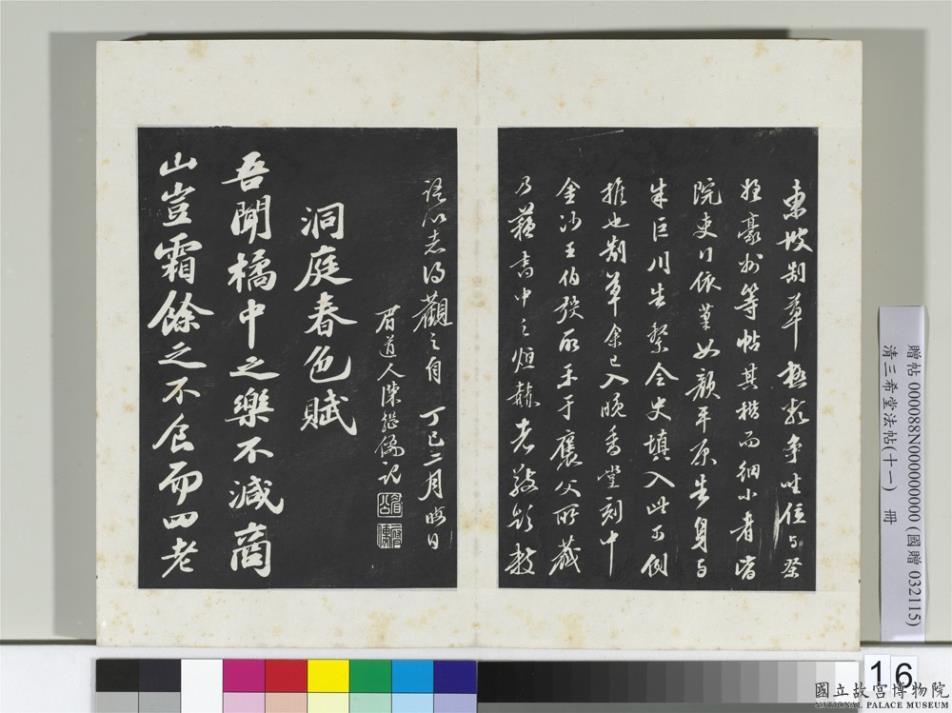 東坡制草極類爭坐位与祭
姪豪州等帖其楷而細小者皆
院吏行依葉如顏平原告身与
朱巨川告繫令史填入此可例
推也制草余已入晚香堂刻中
金沙王伯弢所示于褱父所藏
乃蘇書中之烜赫者敬題數
語以志得觀之自丁巳二月晦日
眉道人陳繼儒記
洞庭春色賦
吾聞橘中之樂不減商
山豈霜餘之不食而四老
贈帖 000088N000000000 (國贈 032115)
清三希堂法帖(十一) 冊
16
國立故宮博物院
NATIONAL PALACE MUSEUM